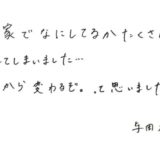 家でなにしてるかたくさ
てしまいました…
から変わるぞ。って思いました
与田